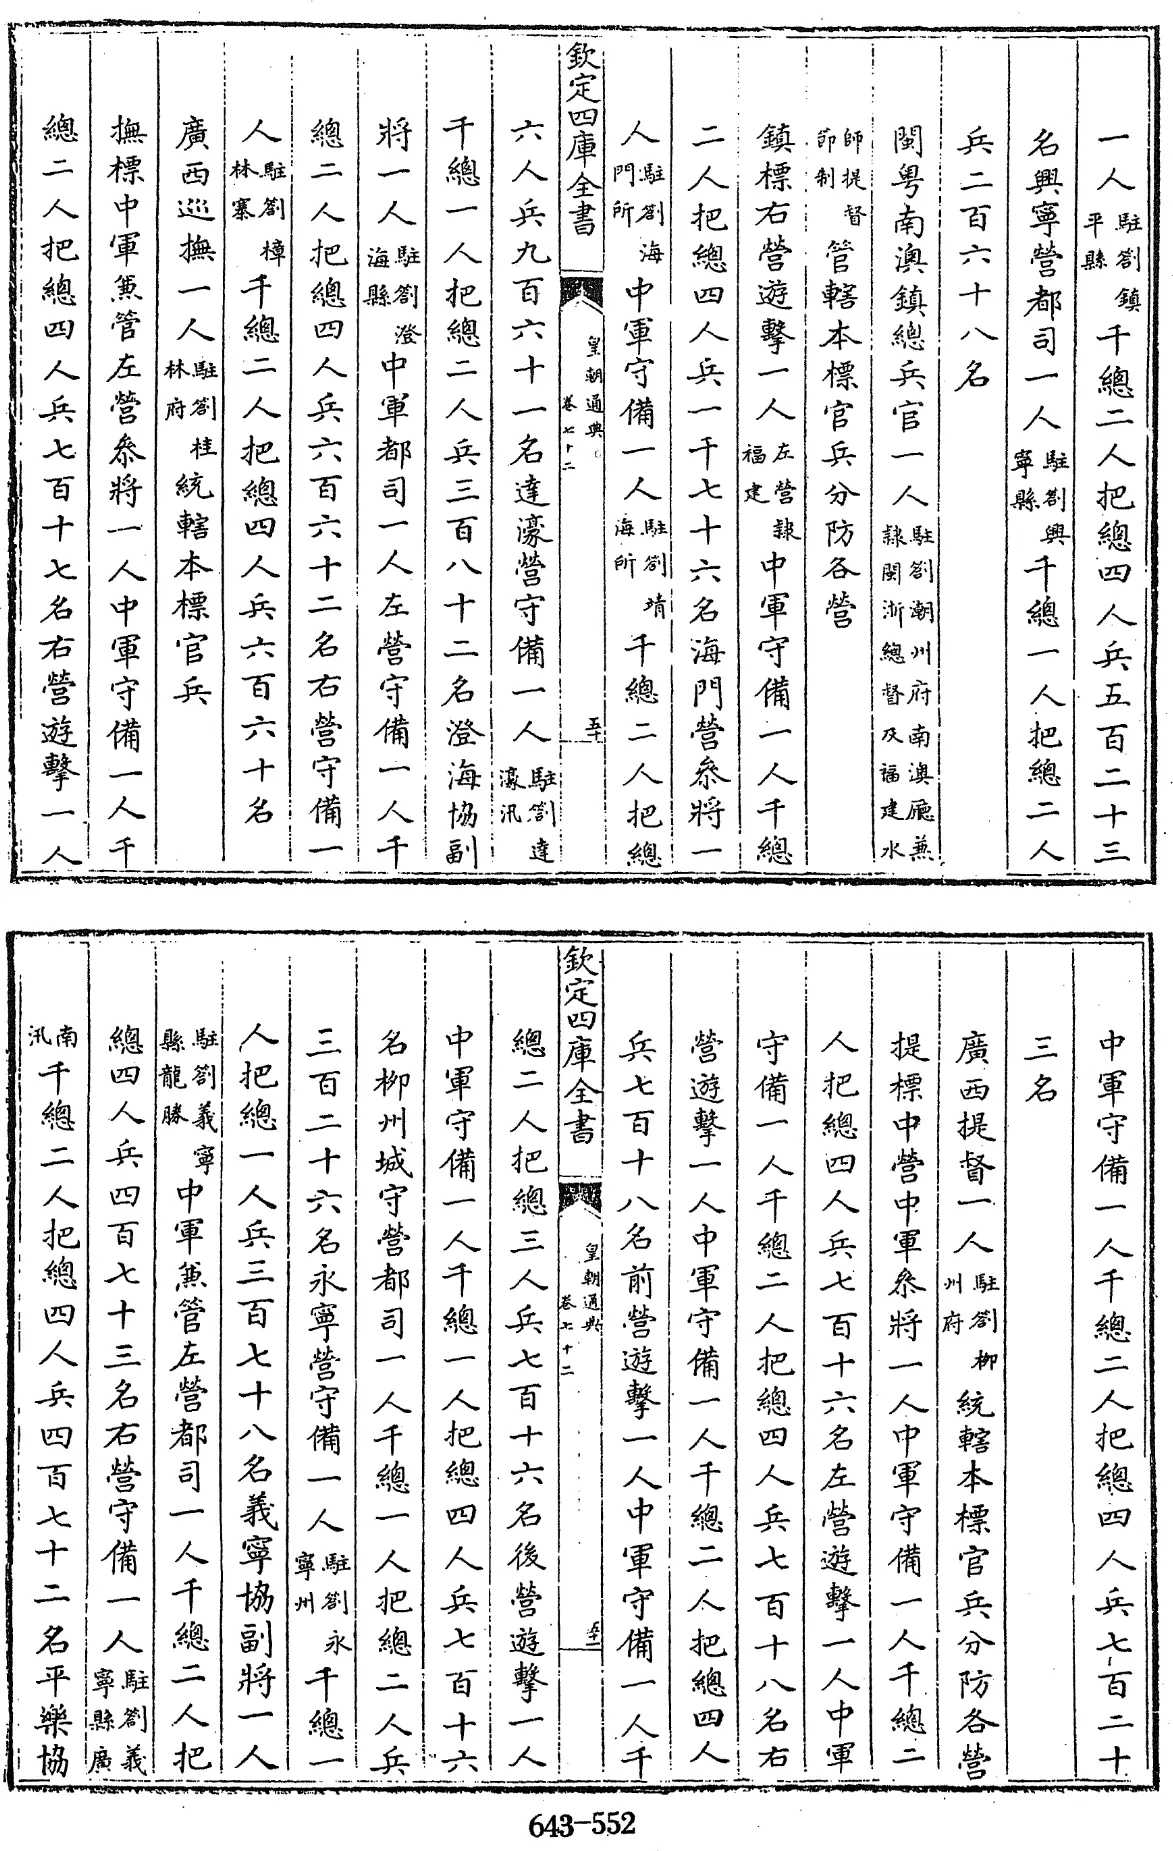 一人駐劄鎮平縣千總二人把總四人兵五百二十三
名興寧營都司一人駐劄興寧縣千總一人把總二人
兵二百六十八名
閩粤南澳鎮總兵官一人駐劄潮州府南澳廳兼隷閩浙總督及福建水
師提督節制管轄本標官兵分防各營
鎮標右營遊擊一人左營隷福建中軍守備一人千總
二人把總四人兵一千七十六名海門營叅將一
人駐劄海門所中軍守備一人駐劄靖海所千總二人把總
欽定四庫全書
皇朝通典
卷七十二
五十
六人兵九百六十一名達濠營守備一人駐劄達濠汛
千總一人把總二人兵三百八十二名澄海協副
將一人駐劄澄海縣中軍都司一人左營守備一人千
總二人把總四人兵六百六十二名右營守備一
人駐劄樟林寨千總二人把總四人兵六百六十名
廣西巡撫一人駐劄桂林府統轄本標官兵
撫標中軍兼管左營叅將一人中軍守備一人千
總二人把總四人兵七百十七名右營遊擊一人
中軍守備一人千總二人把總四人兵七百二十
三名
廣西提督一人駐劄柳州府統轄本標官兵分防各營
提標中營中軍叅將一人中軍守備一人千總二
人把總四人兵七百十六名左營遊擊一人中軍
守備一人千總二人把總四人兵七百十八名右
營遊擊一人中軍守備一人千總二人把總四人
兵七百十八名前營遊擊一人中軍守備一人千
欽定四庫全書
皇朝通典
卷七十二
五十一
總二人把總三人兵七百十六名後營遊擊一人
中軍守備一人千總一人把總四人兵七百十六
名柳州城守營都司一人千總一人把總二人兵
三百二十六名永寧營守備一人駐劄永寧州千總一
人把總一人兵三百七十八名義寧協副將一人
駐劄義寧縣龍勝中軍兼管左營都司一人千總二人把
總四人兵四百七十三名右營守備一人駐劄義寧縣廣
南汛千總二人把總四人兵四百七十二名平樂協
643-552